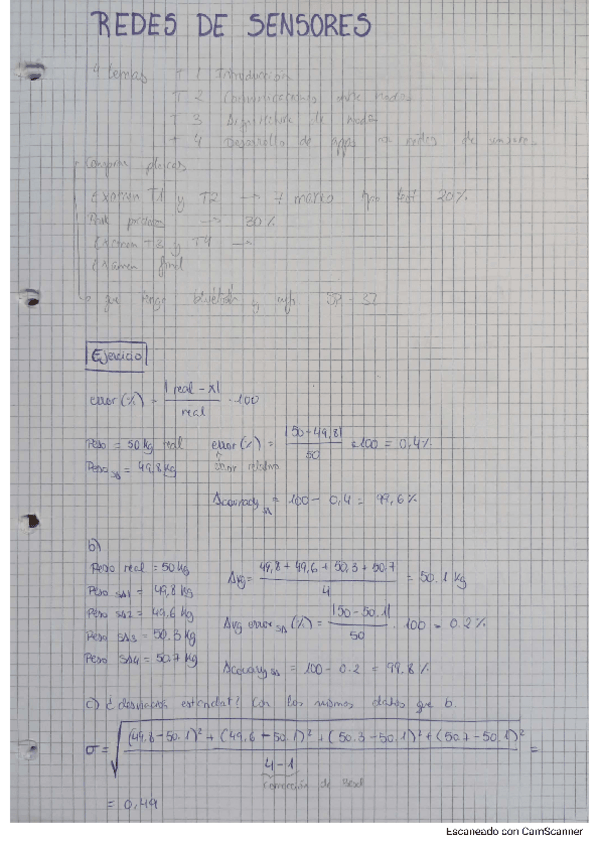 REDES DE SENSORES
4 temas T 1 Introducción
T 2 Comunicaciones entre nodos
T 3 Arquitectura de nodos
T 4 Desarrollo de apps en redes de sensores
Comprar placas
Examen T1 y T2 → 7 marzo tipo test 20%
→ 30%
Examen T3 y T4 →
Examen final
que tenga bluetooth y wifi
Ejercicio
error (%) = |real - x| / real · 100
Peso = 50 kg real error (%) = |50 - 49,8| / 50 · 100 = 0,4%
Peso SA = 49,8 kg error relativo
Accuracy SA = 100 - 0,4 = 99,6%
b)
Peso real = 50 kg Avg = 49,8 + 49,6 + 50,3 + 50,7 / 4 = 50.1 kg
Peso SA1 = 49,8 kg
Peso SA2 = 49,6 kg Avg error SA (%) = |50 - 50.1| / 50 · 100 = 0.2%
Peso SA3 = 50.3 kg
Peso SA4 = 50.7 kg Accuracy SA = 100 - 0.2 = 99.8%
c) ¿desviación estándar? Con los mismos datos que b.
σ = √ (49,8 - 50.1)² + (49,6 - 50.1)² + (50.3 - 50.1)² + (50.7 - 50.1)² / 4-1 =
corrección de
= 0,49
Escaneado con CamScanner